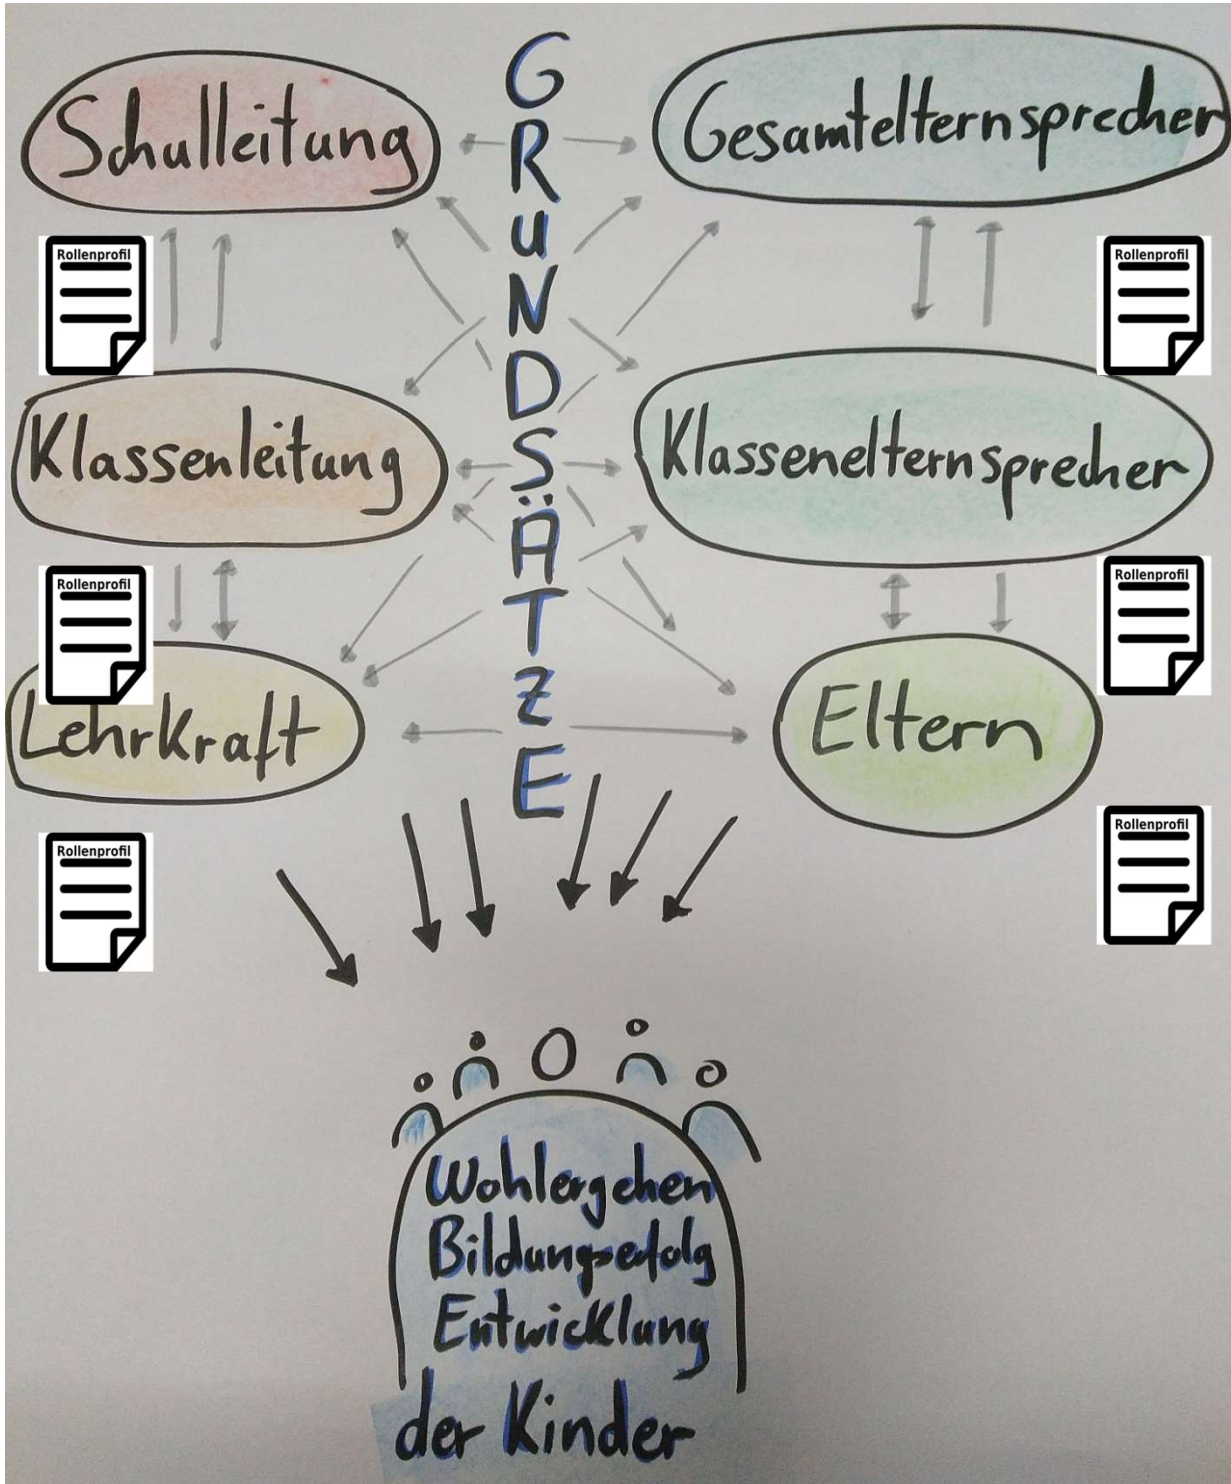 Schulleitung
Gesamtelternsprecher
GRuNDSÄTZE
Rollenprofil
Rollenprofil
Klassenleitung
Klassenelternsprecher
Rollenprofil
Rollenprofil
Lehrkraft
Eltern
Rollenprofil
Rollenprofil
Wohlergehen
Bildungserfolg
Entwicklung
der Kinder